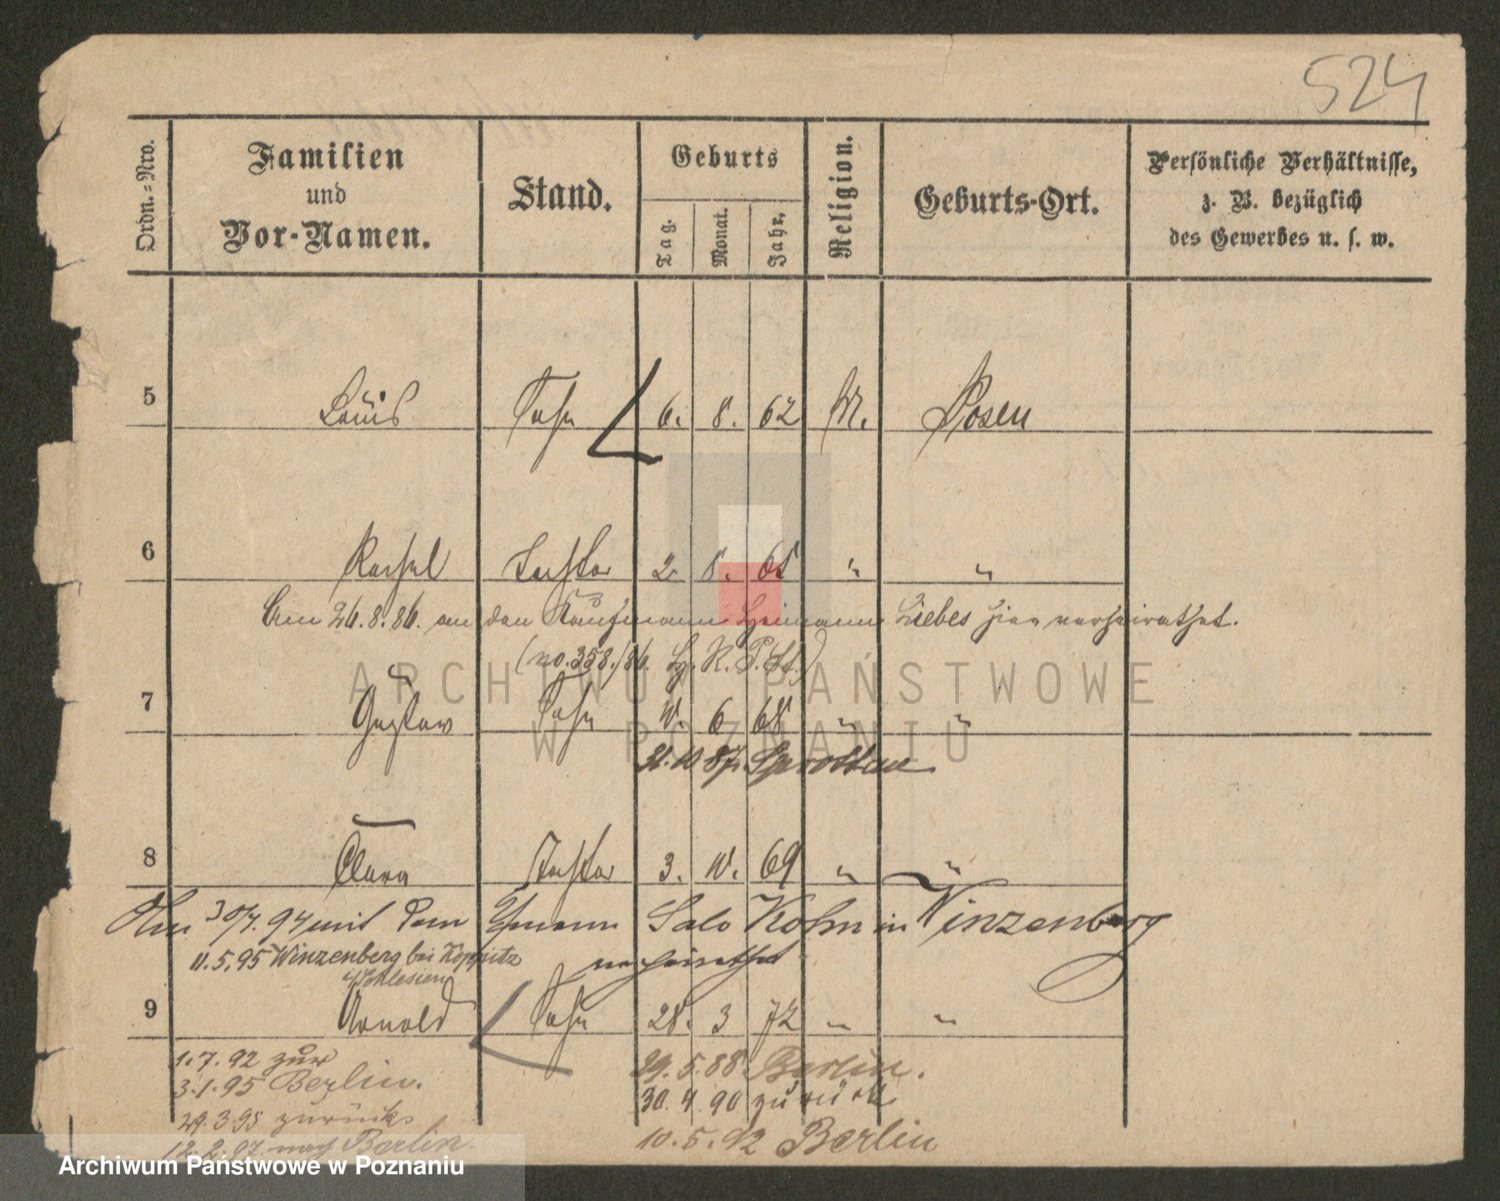 524
Ordn.-Nro.
Familien
und
Vor-Namen.
Stand.
Geburts
Tag.
Monat.
Jahr.
Religion.
Geburts-Ort.
Persönliche Verhältnisse,
z. B. bezüglich
des Gewerbes u. s. w.
5 Louis Sohn 6. 8. 62 M. Posen
6 Rachel Tochter 2 8. 65 " "
Am 26.8.86. an den Kaufmann Heimann Liebes hier verheirathet.
(no. 358./86. P. St.)
7 Gustav Sohn 6 68 " "
10 87. Sprottau
8 Clara Tochter 3. 69 " "
Am 30/4. 94 mit dem Ehmann Salo Kohn in Winzenberg
11.5.95 Winzenberg bei Koppitz verheirathet
i/Schlesien
9 Arnold Sohn 28. 3 72 " "
1.7.92 zur
3.1.95 Berlin.
29.3.95 zurück
12.2.97. nach Berlin.
29.5.88. Berlin.
30. 4 90 zurück
10.5.92 Berlin
ARCHIWUM PAŃSTWOWE
W POZNANIU
Archiwum Państwowe w Poznaniu